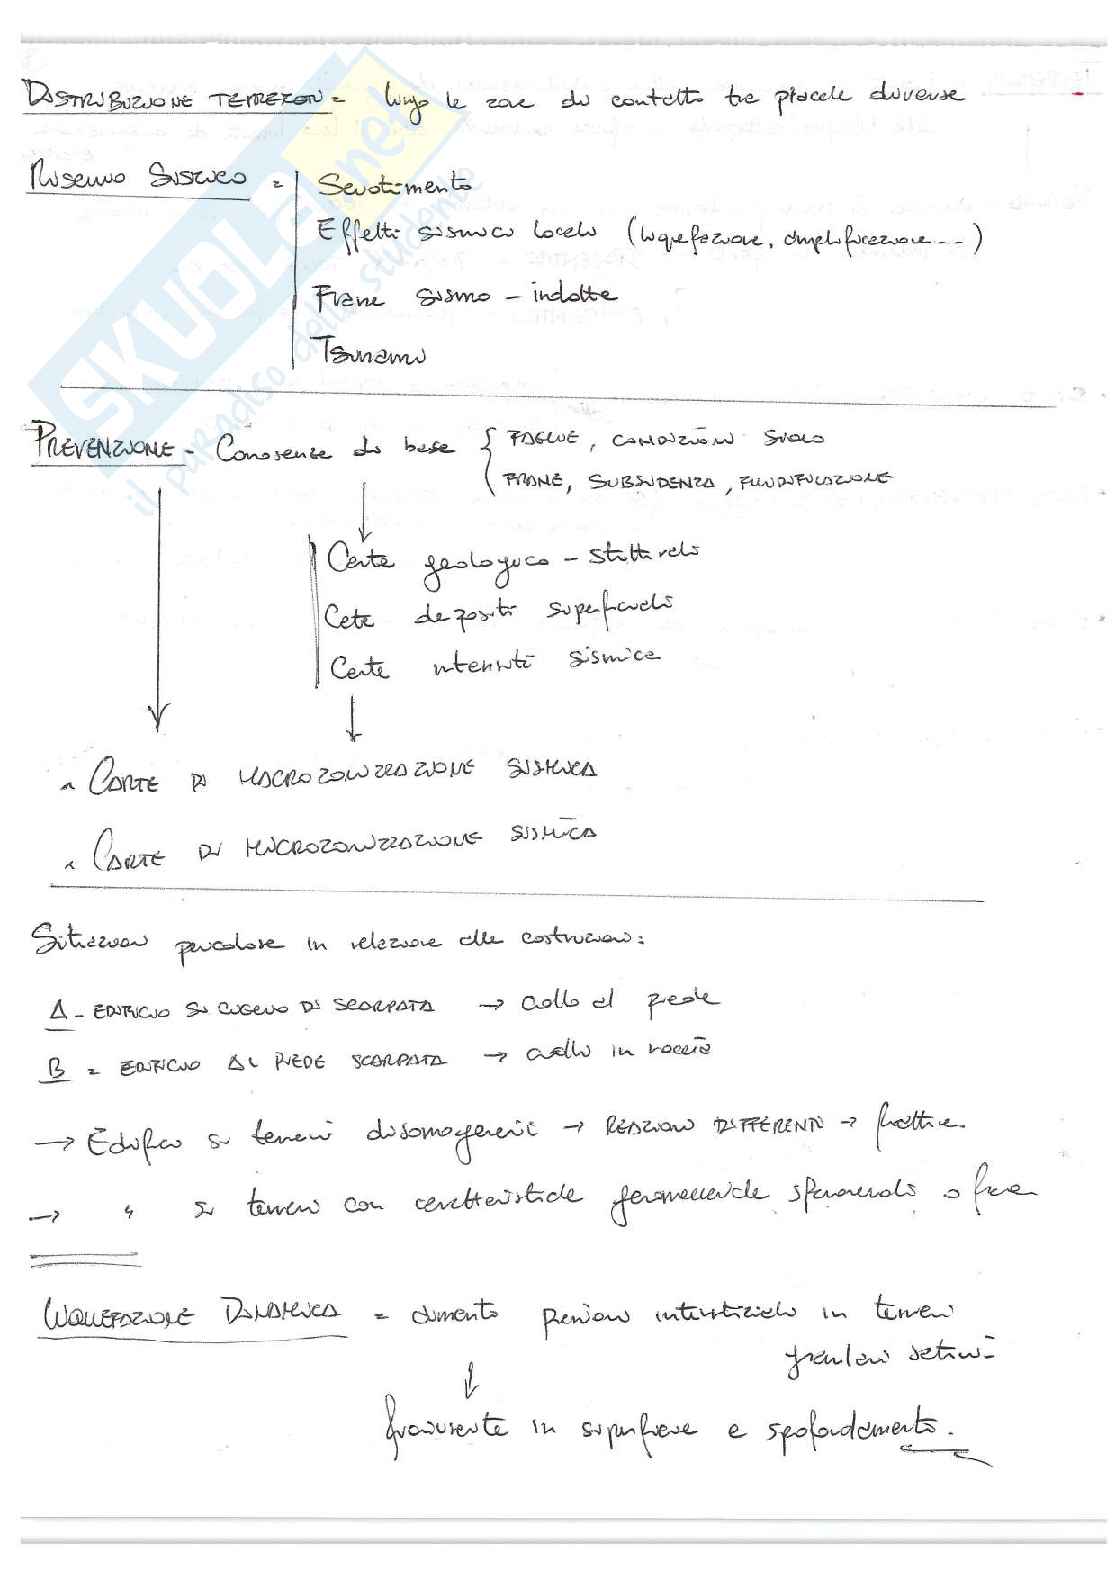 DISTRIBUZIONE TERREMOTI = lungo le zone di contatto tra placche diverse
RISCHIO SISMICO = Scuotimento
Effetti sismici locali (liquefazione, amplificazione...)
Frane sismo-indotte
Tsunami
PREVENZIONE - Conoscenze di base { FAGLIE, CONDIZIONI SUOLO
FRANE, SUBSIDENZA, FLUIDIFICAZIONE
Carte geologico-strutturali
Carte depositi superficiali
Carte intensità sismica
CARTE DI MACROZONIZZAZIONE SISMICA
CARTE DI MICROZONIZZAZIONE SISMICA
Situazioni pericolose in relazione alle costruzioni:
A - EDIFICIO SU CIGLIO DI SCARPATA → crollo al piede
B = EDIFICIO AL PIEDE SCARPATA → crollo in roccia
→ Edifici su terreni disomogenei → REAZIONI DIFFERENTI → fratture.
→ " su terreni con caratteristiche geomeccaniche sfavorevoli o frane
LIQUEFAZIONE DINAMICA = aumento pressioni interstiziali in terreni
granulari saturi
fuoriuscite in superficie e sprofondamento.
SKUOLA.net
il paradiso dello studente